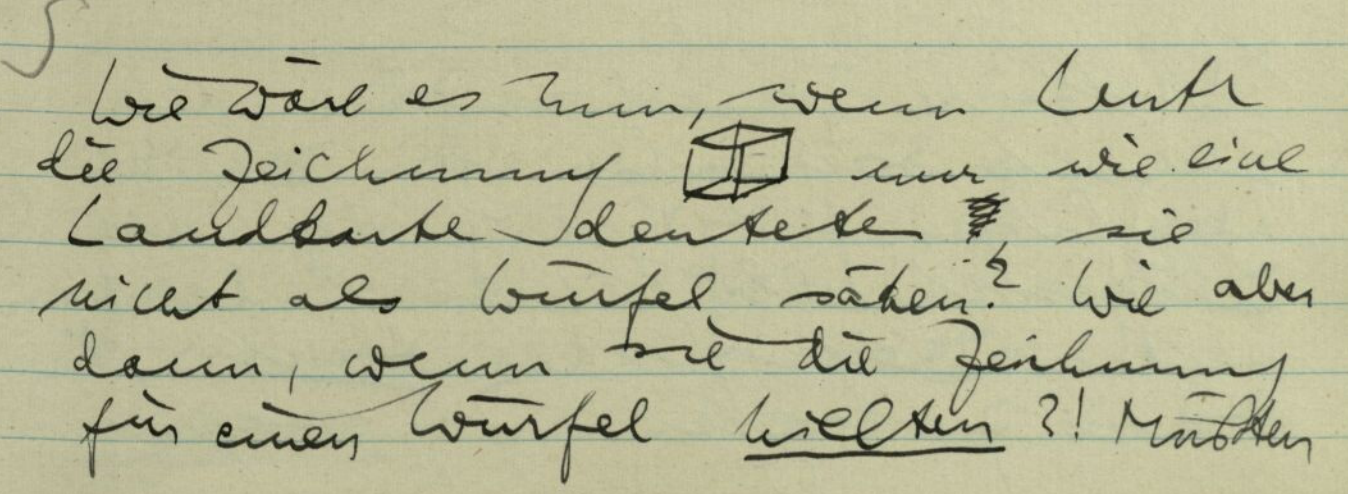 Wie wäre es nun, wenn Leute
die Zeichnung nur wie eine
Landkarte deuteten, sie
nicht als Würfel sähen? Wie aber
dann, wenn sie die Zeichnung
für einen Würfel hielten?! Müßten